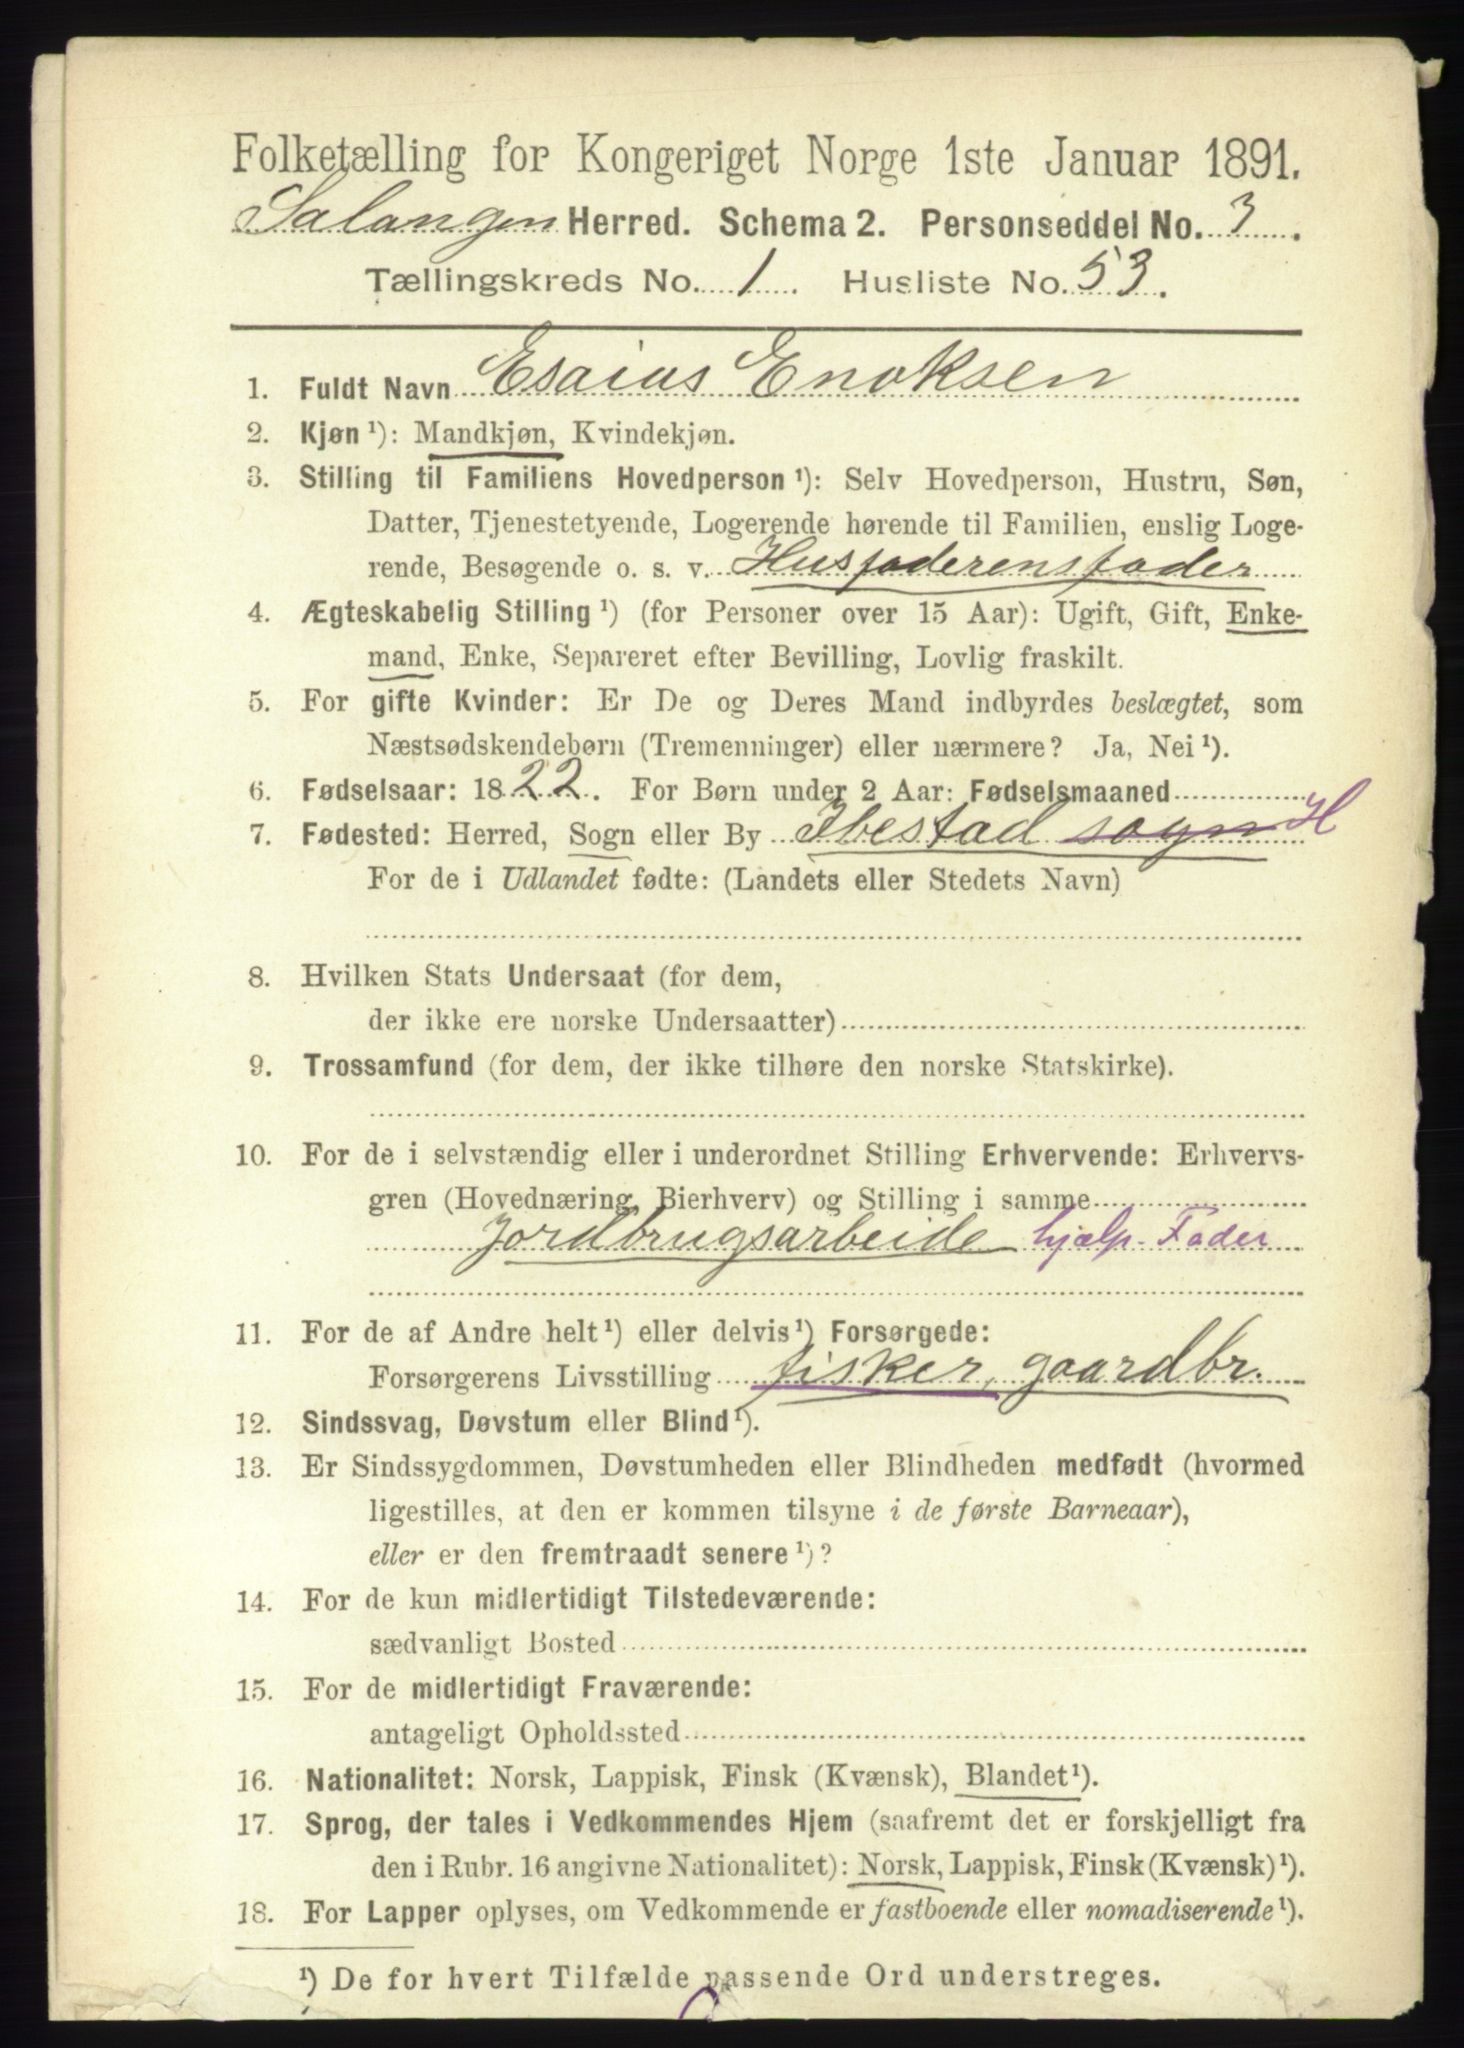 Folketælling for Kongeriget Norge 1ste Januar 1891.
Salangen Herred. Schema 2. Personseddel No. 3.
Tællingskreds No. 1. Husliste No. 53.
1. Fuldt Navn Esaias Enoksen
2. Kjøn ¹): Mandkjøn, Kvindekjøn.
3. Stilling til Familiens Hovedperson ¹): Selv Hovedperson, Hustru, Søn,
Datter, Tjenestetyende, Logerende hørende til Familien, enslig Loge-
rende, Besøgende o. s. v. Husfaderens fader
4. Ægteskabelig Stilling ¹) (for Personer over 15 Aar): Ugift, Gift, Enke-
mand, Enke, Separeret efter Bevilling, Lovlig fraskilt.
5. For gifte Kvinder: Er De og Deres Mand indbyrdes beslægtet, som
Næstsødskendebørn (Tremenninger) eller nærmere? Ja, Nei ¹).
6. Fødselsaar: 1822. For Børn under 2 Aar: Fødselsmaaned
7. Fødested: Herred, Sogn eller By Ibestad sogn H
For de i Udlandet fødte: (Landets eller Stedets Navn)
8. Hvilken Stats Undersaat (for dem,
der ikke ere norske Undersaatter)
9. Trossamfund (for dem, der ikke tilhøre den norske Statskirke).
10. For de i selvstændig eller i underordnet Stilling Erhvervende: Erhvervs-
gren (Hovednæring, Bierhverv) og Stilling i samme
Jordbrugsarbeide hjælp. Fader
11. For de af Andre helt ¹) eller delvis ¹) Forsørgede:
Forsørgerens Livsstilling fisker, gaardbr.
12. Sindssvag, Døvstum eller Blind ¹).
13. Er Sindssygdommen, Døvstumheden eller Blindheden medfødt (hvormed
ligestilles, at den er kommen tilsyne i de første Barneaar),
eller er den fremtraadt senere ¹)?
14. For de kun midlertidigt Tilstedeværende:
sædvanligt Bosted
15. For de midlertidigt Fraværende:
antageligt Opholdssted
16. Nationalitet: Norsk, Lappisk, Finsk (Kvænsk), Blandet ¹).
17. Sprog, der tales i Vedkommendes Hjem (saafremt det er forskjelligt fra
den i Rubr. 16 angivne Nationalitet): Norsk, Lappisk, Finsk (Kvænsk) ¹).
18. For Lapper oplyses, om Vedkommende er fastboende eller nomadiserende ¹).
¹) De for hvert Tilfælde passende Ord understreges.